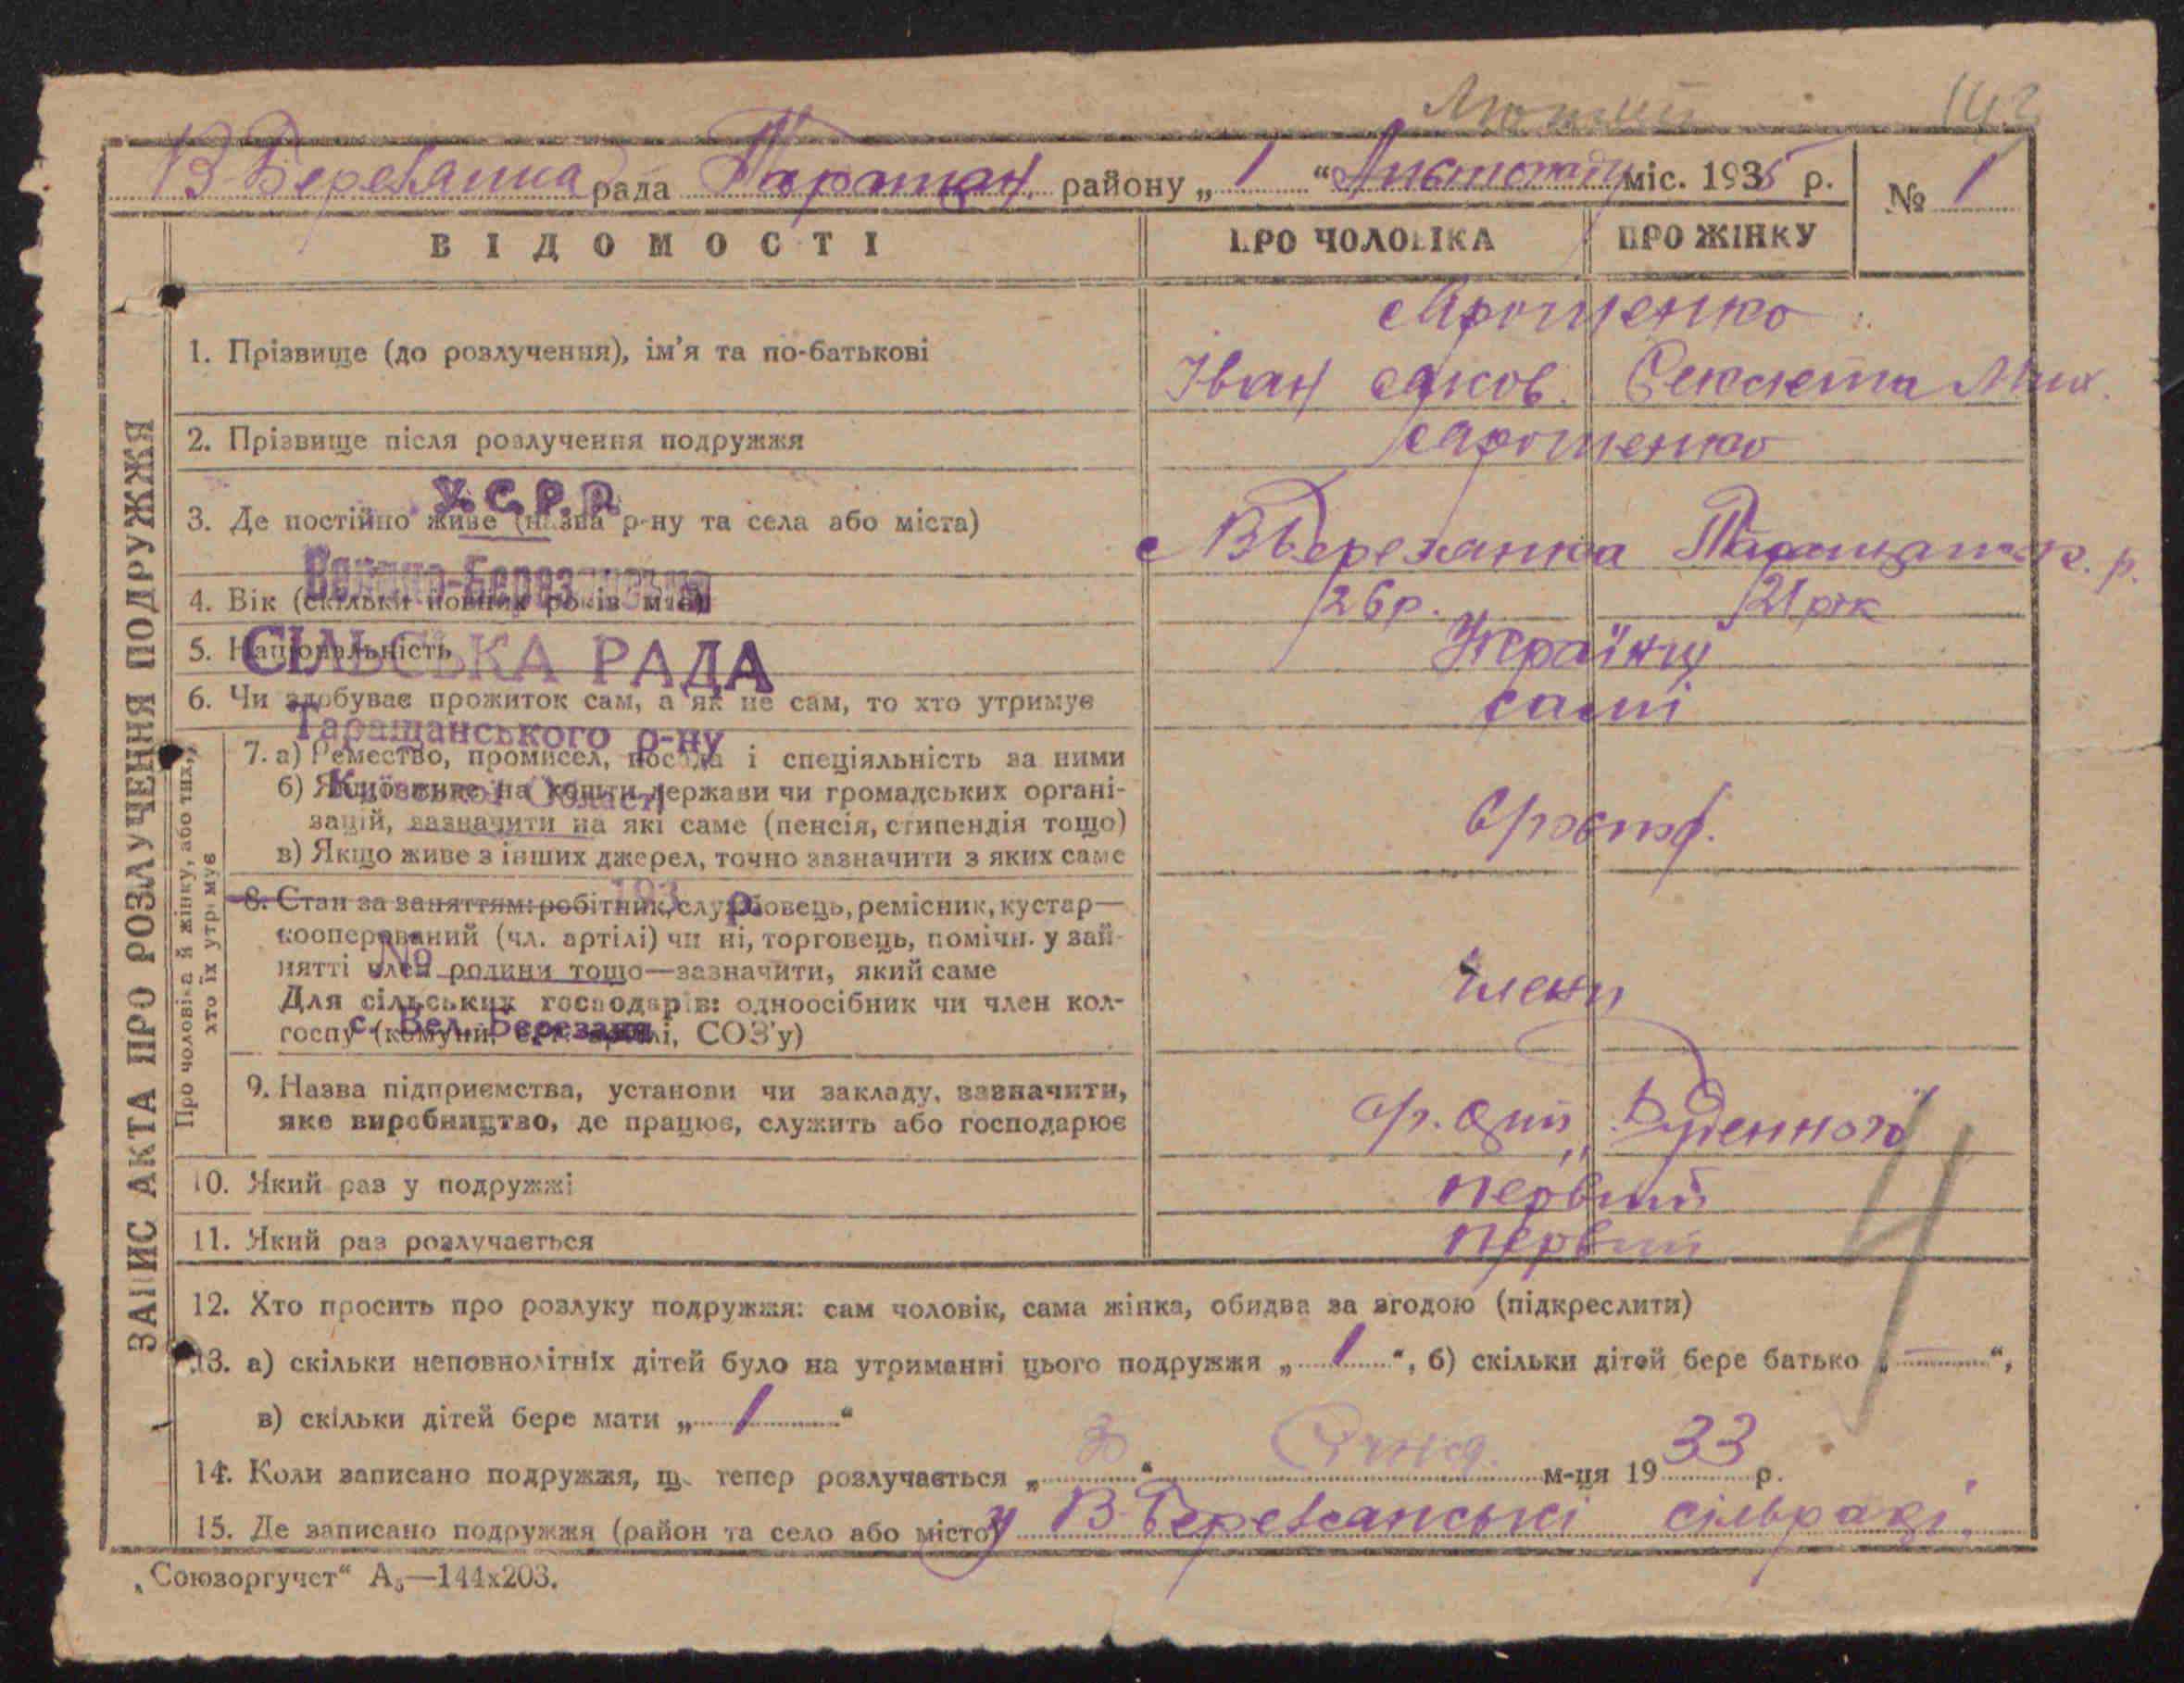 Лютий 142
В-Березанка рада Таращан. району „ 1 “ Листопаду міс. 1935 р. № 1
ВІДОМОСТІ ПРО ЧОЛОВІКА ПРО ЖІНКУ
Ярошенко
1. Прізвище (до розлучення), ім'я та по-батькові
Іван Яков. Мих.
2. Прізвище після розлучення подружжя Ярошенко
У.С.Р.Р.
3. Де постійно живе (назва р-ну та села або міста)
с В Березанка Таращанськ. р.
Велико-Березанська
4. Вік (скільки повних років має) 26 р. 21 рік
5. Національність Українці
СІЛЬСЬКА РАДА
6. Чи здобуває прожиток сам, а як не сам, то хто утримує самі
Таращанського р-ну
7. а) Ремество, промисел, посада і спеціяльність за ними
Київської Області
б) Якщо живе на кошти держави чи громадських органі-
зацій, зазначити на які саме (пенсія, стипендія тощо)
в) Якщо живе з інших джерел, точно зазначити з яких саме
193 р.
8. Стан за заняттям: робітник, службовець, ремісник, кустар—
кооперований (чл. артілі) чи ні, торговець, помічн. у зай-
№
нятті член родини тощо—зазначити, який саме
Для сільських господарів: одноосібник чи член кол-
госпу (комуни, с.-г. артілі, СОЗ'у)
с. Вел. Березанка
члени
9. Назва підприємства, установи чи закладу, зазначити,
яке виробництво, де працює, служить або господарює
„Буденного“
10. Який раз у подружжі первий
11. Який раз розлучається первий
12. Хто просить про розлуку подружжя: сам чоловік, сама жінка, обидва за згодою (підкреслити)
13. а) скільки неповнолітніх дітей було на утриманні цього подружжя „ 1 “, б) скільки дітей бере батько „ — “,
в) скільки дітей бере мати „ 1 “
14. Коли записано подружжя, що тепер розлучається „ “ м-ця 1933 р.
15. Де записано подружжя (район та село або місто) у В-Березанські сільраді.
„Союзоргучет“ А₅—144х203.
ЗАПИС АКТА ПРО РОЗЛУЧЕННЯ ПОДРУЖЖЯ
Про чоловіка й жінку, або тих,
хто їх утримує
4